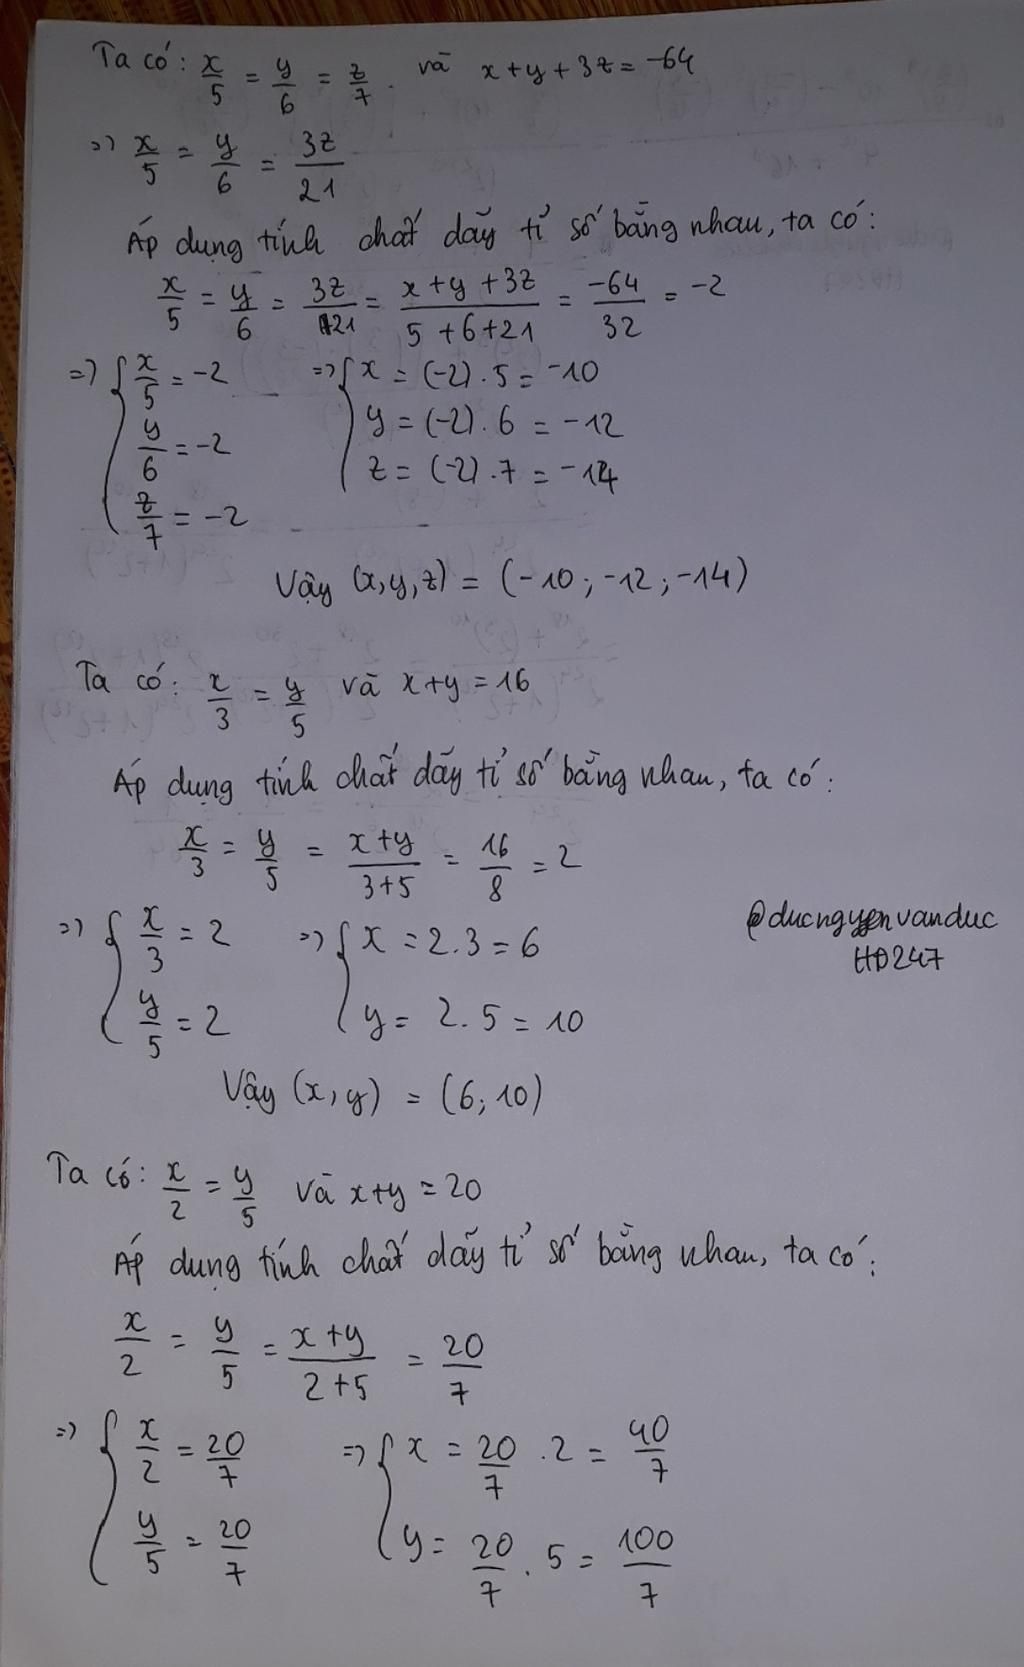 Ta có: x/5 = y/6 = z/7. và x+y+3z = -64
=> x/5 = y/6 = 3z/21
Áp dụng tính chất dãy tỉ số bằng nhau, ta có:
x/5 = y/6 = 3z/21 = (x+y+3z)/(5+6+21) = -64/32 = -2
=> { x/5 = -2 => { x = (-2).5 = -10
y/6 = -2 y = (-2).6 = -12
z/7 = -2 z = (-2).7 = -14
Vậy (x,y,z) = (-10; -12; -14)
Ta có: x/3 = y/5 và x+y = 16
Áp dụng tính chất dãy tỉ số bằng nhau, ta có:
x/3 = y/5 = (x+y)/(3+5) = 16/8 = 2
=> { x/3 = 2 => { x = 2.3 = 6
y/5 = 2 y = 2.5 = 10
@ducnguyenvanduc
HD247
Vậy (x,y) = (6; 10)
Ta có: x/2 = y/5 và x+y = 20
Áp dụng tính chất dãy tỉ số bằng nhau, ta có:
x/2 = y/5 = (x+y)/(2+5) = 20/7
=> { x/2 = 20/7 => { x = 20/7 . 2 = 40/7
y/5 = 20/7 y = 20/7 . 5 = 100/7